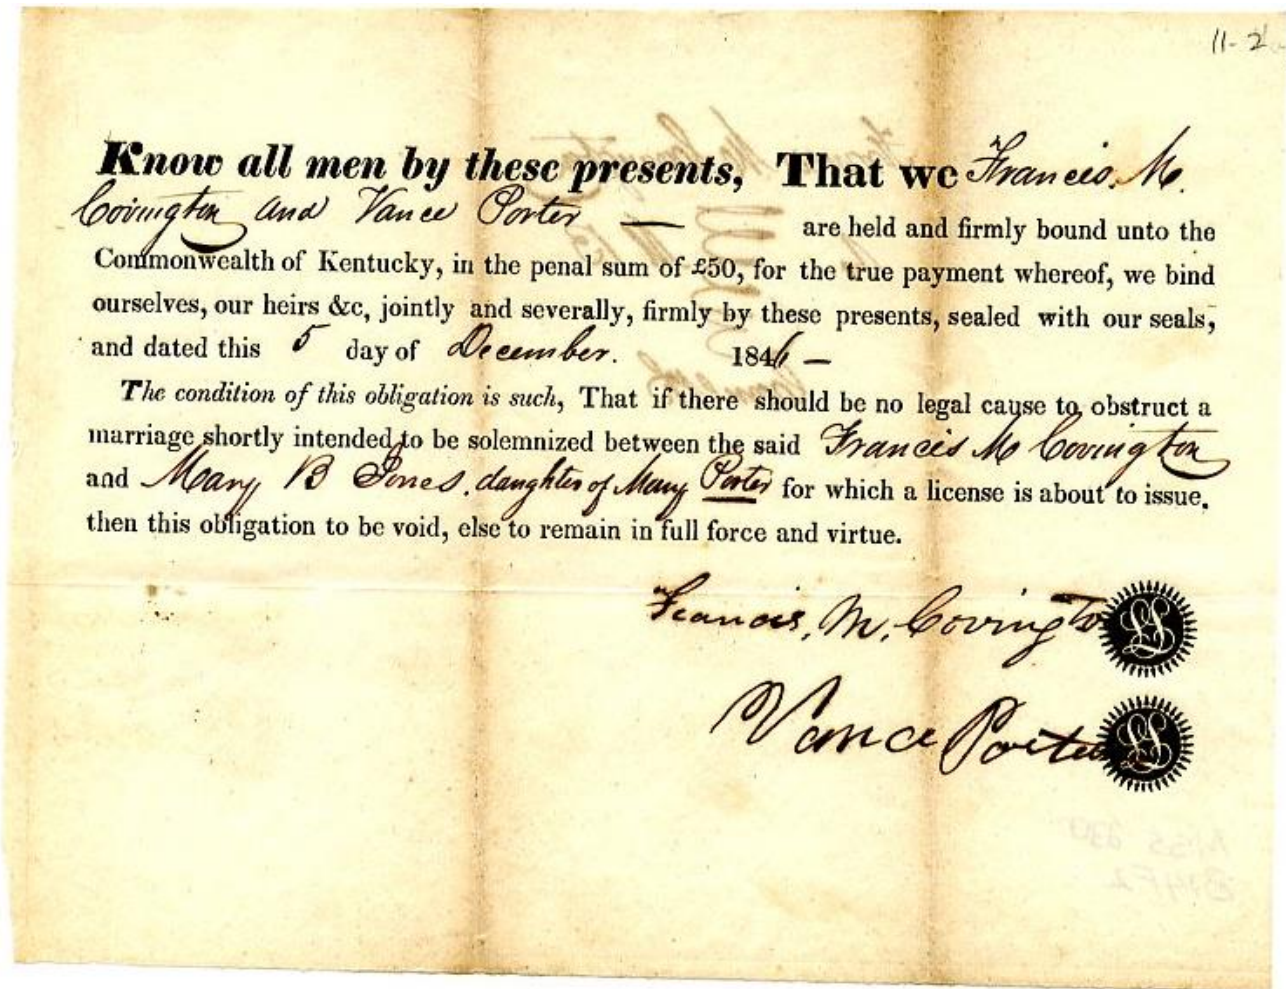 11-2
Know all men by these presents, That we Francis. M.
Covington and Vance Porter — are held and firmly bound unto the
Commonwealth of Kentucky, in the penal sum of £50, for the true payment whereof, we bind
ourselves, our heirs &c, jointly and severally, firmly by these presents, sealed with our seals,
and dated this 5 day of December. 1846 —
The condition of this obligation is such, That if there should be no legal cause to obstruct a
marriage shortly intended to be solemnized between the said Francis M Covington
and Mary B Jones. daughter of Mary Porter for which a license is about to issue,
then this obligation to be void, else to remain in full force and virtue.
Francis. M. Covington LS
Vance Porter LS